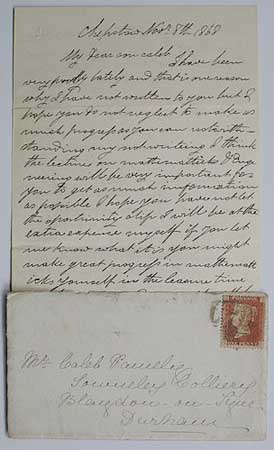 Chepstow Novr 8th 1868
My Dear son Caleb
I have been
very poorly lately and that is one reason
why I have not written to you but I
hope you do not neglect to make as
much progress as you can notwith-
standing my not writing I think
the lectures on mathematicks & Engi
neering will be very important for
you to get as much information
as possible I hope you have not let
the oportunity slip I will be at the
extra expence myself if you let
me know what it is you might
make great progress in mathemat
icks yourself in the leasure time
Mr Caleb Pamely
Colliery
Blaydon-on-Tyne
Durham
ONE PENNY